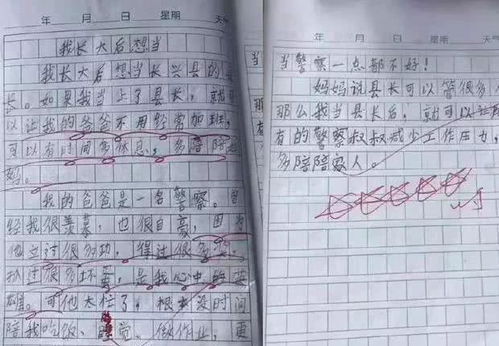 年 月 日 星期 天气
我长大后想当
我长大后想当长兴县的
长。如果我当上了县长，就
以让我的爸爸不用经常加班，
可以有时间多休息，多陪陪
妈。
我的爸爸是一名警察。曾
经我很羡慕，也很自豪，因为
他立过很多功，得过很多
抓过很多坏蛋，是我心中的英
雄。可他太忙了，根本没时间
陪我吃饭、睡觉、做作业，更
年 月 日 星期 天气
当警察一点都不好！
妈妈说县长可以管很多
那么我当县长后，就可以
有的警察叔叔减少工作压力，
多陪陪家人。